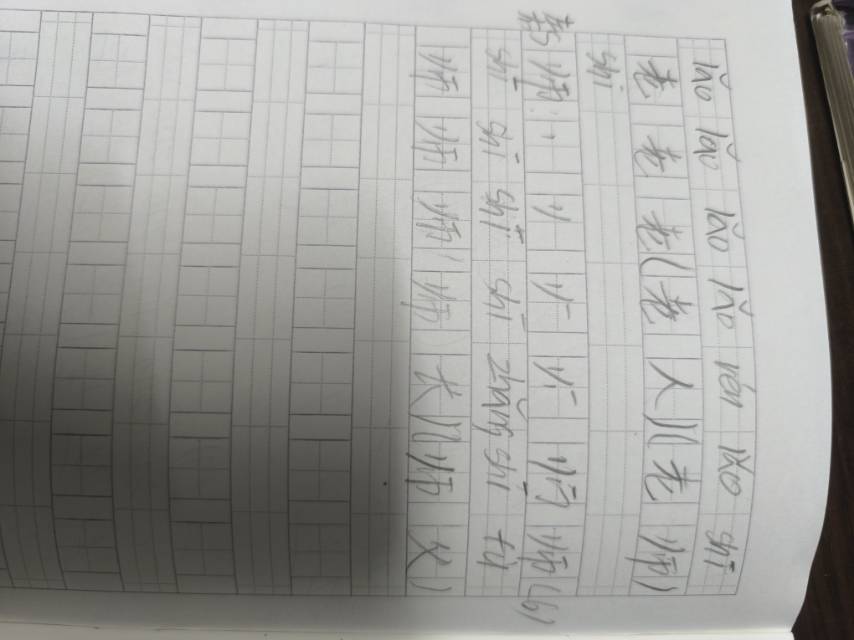 lǎo lǎo lǎo lǎo rén lǎo shī
老老老(老人)(老师)
shī
师: 师(6)
shī shī shī shī zhǎng shī fù
师师师(师长)(师父)